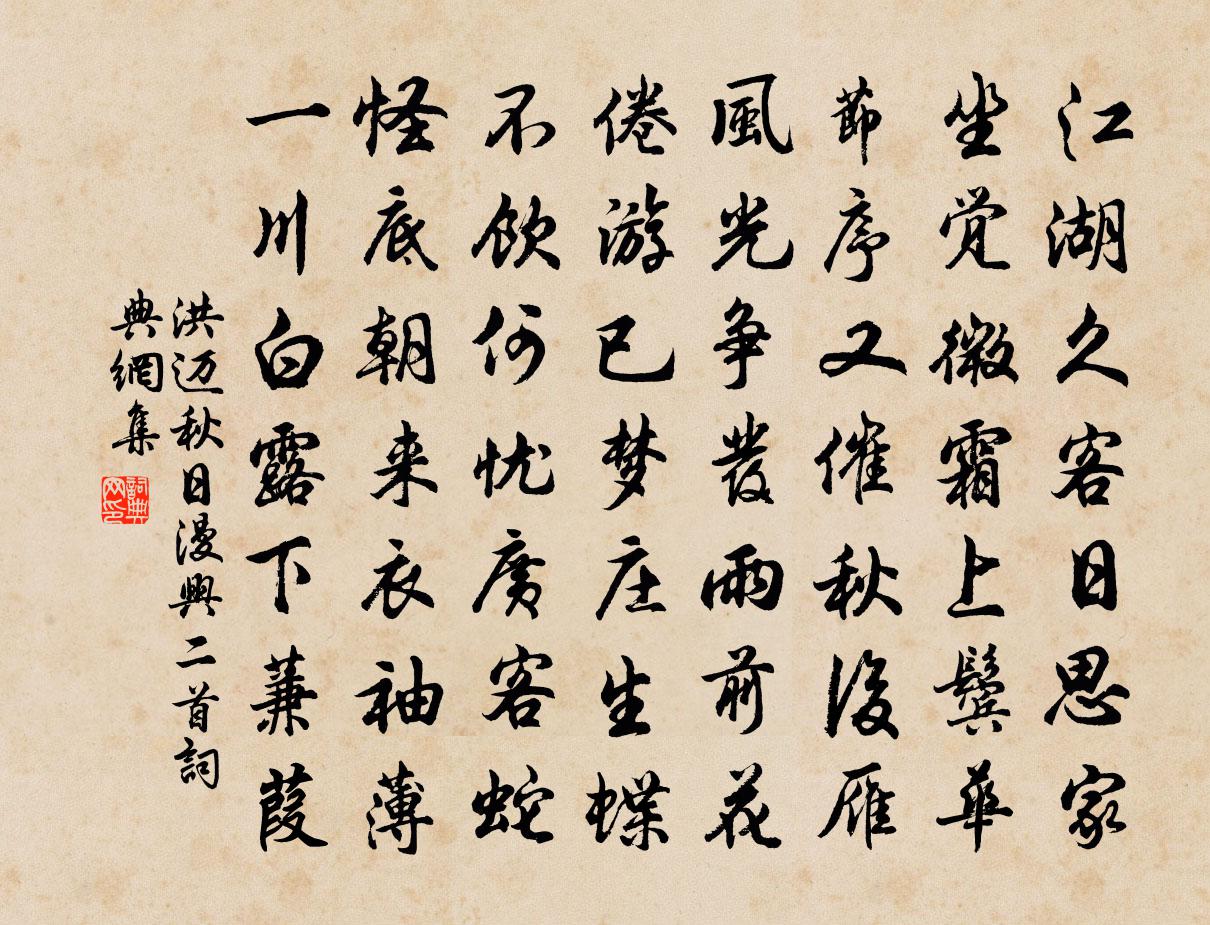 江湖久客日思家
坐觉微霜上鬓華
節序又催秋後雁
風光争發雨前花
倦游已梦庄生蝶
不飲何忧廣客蛇
怪底朝来衣袖薄
一川白露下蒹葭
洪迈秋日漫興二首詞
典網集
詞典
网印